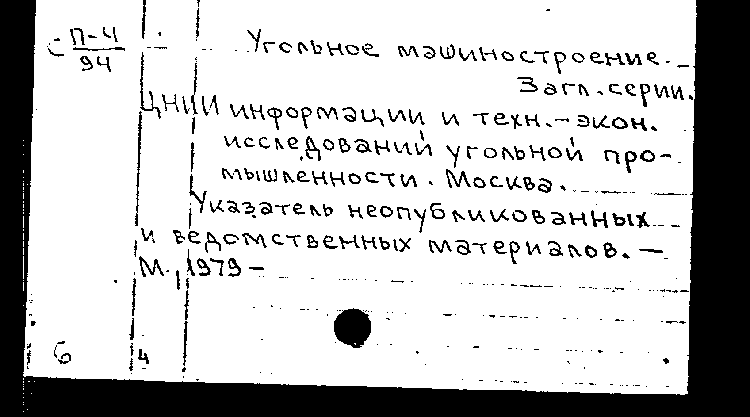 С П-4
94
Угольное машиностроение.
Загл. серии.
ЦНИИ информации и техн.-экон.
исследований угольной про-
мышленности. Москва.
Указатель неопубликованных
и ведомственных материалов. —
М., 1979 —
б 4